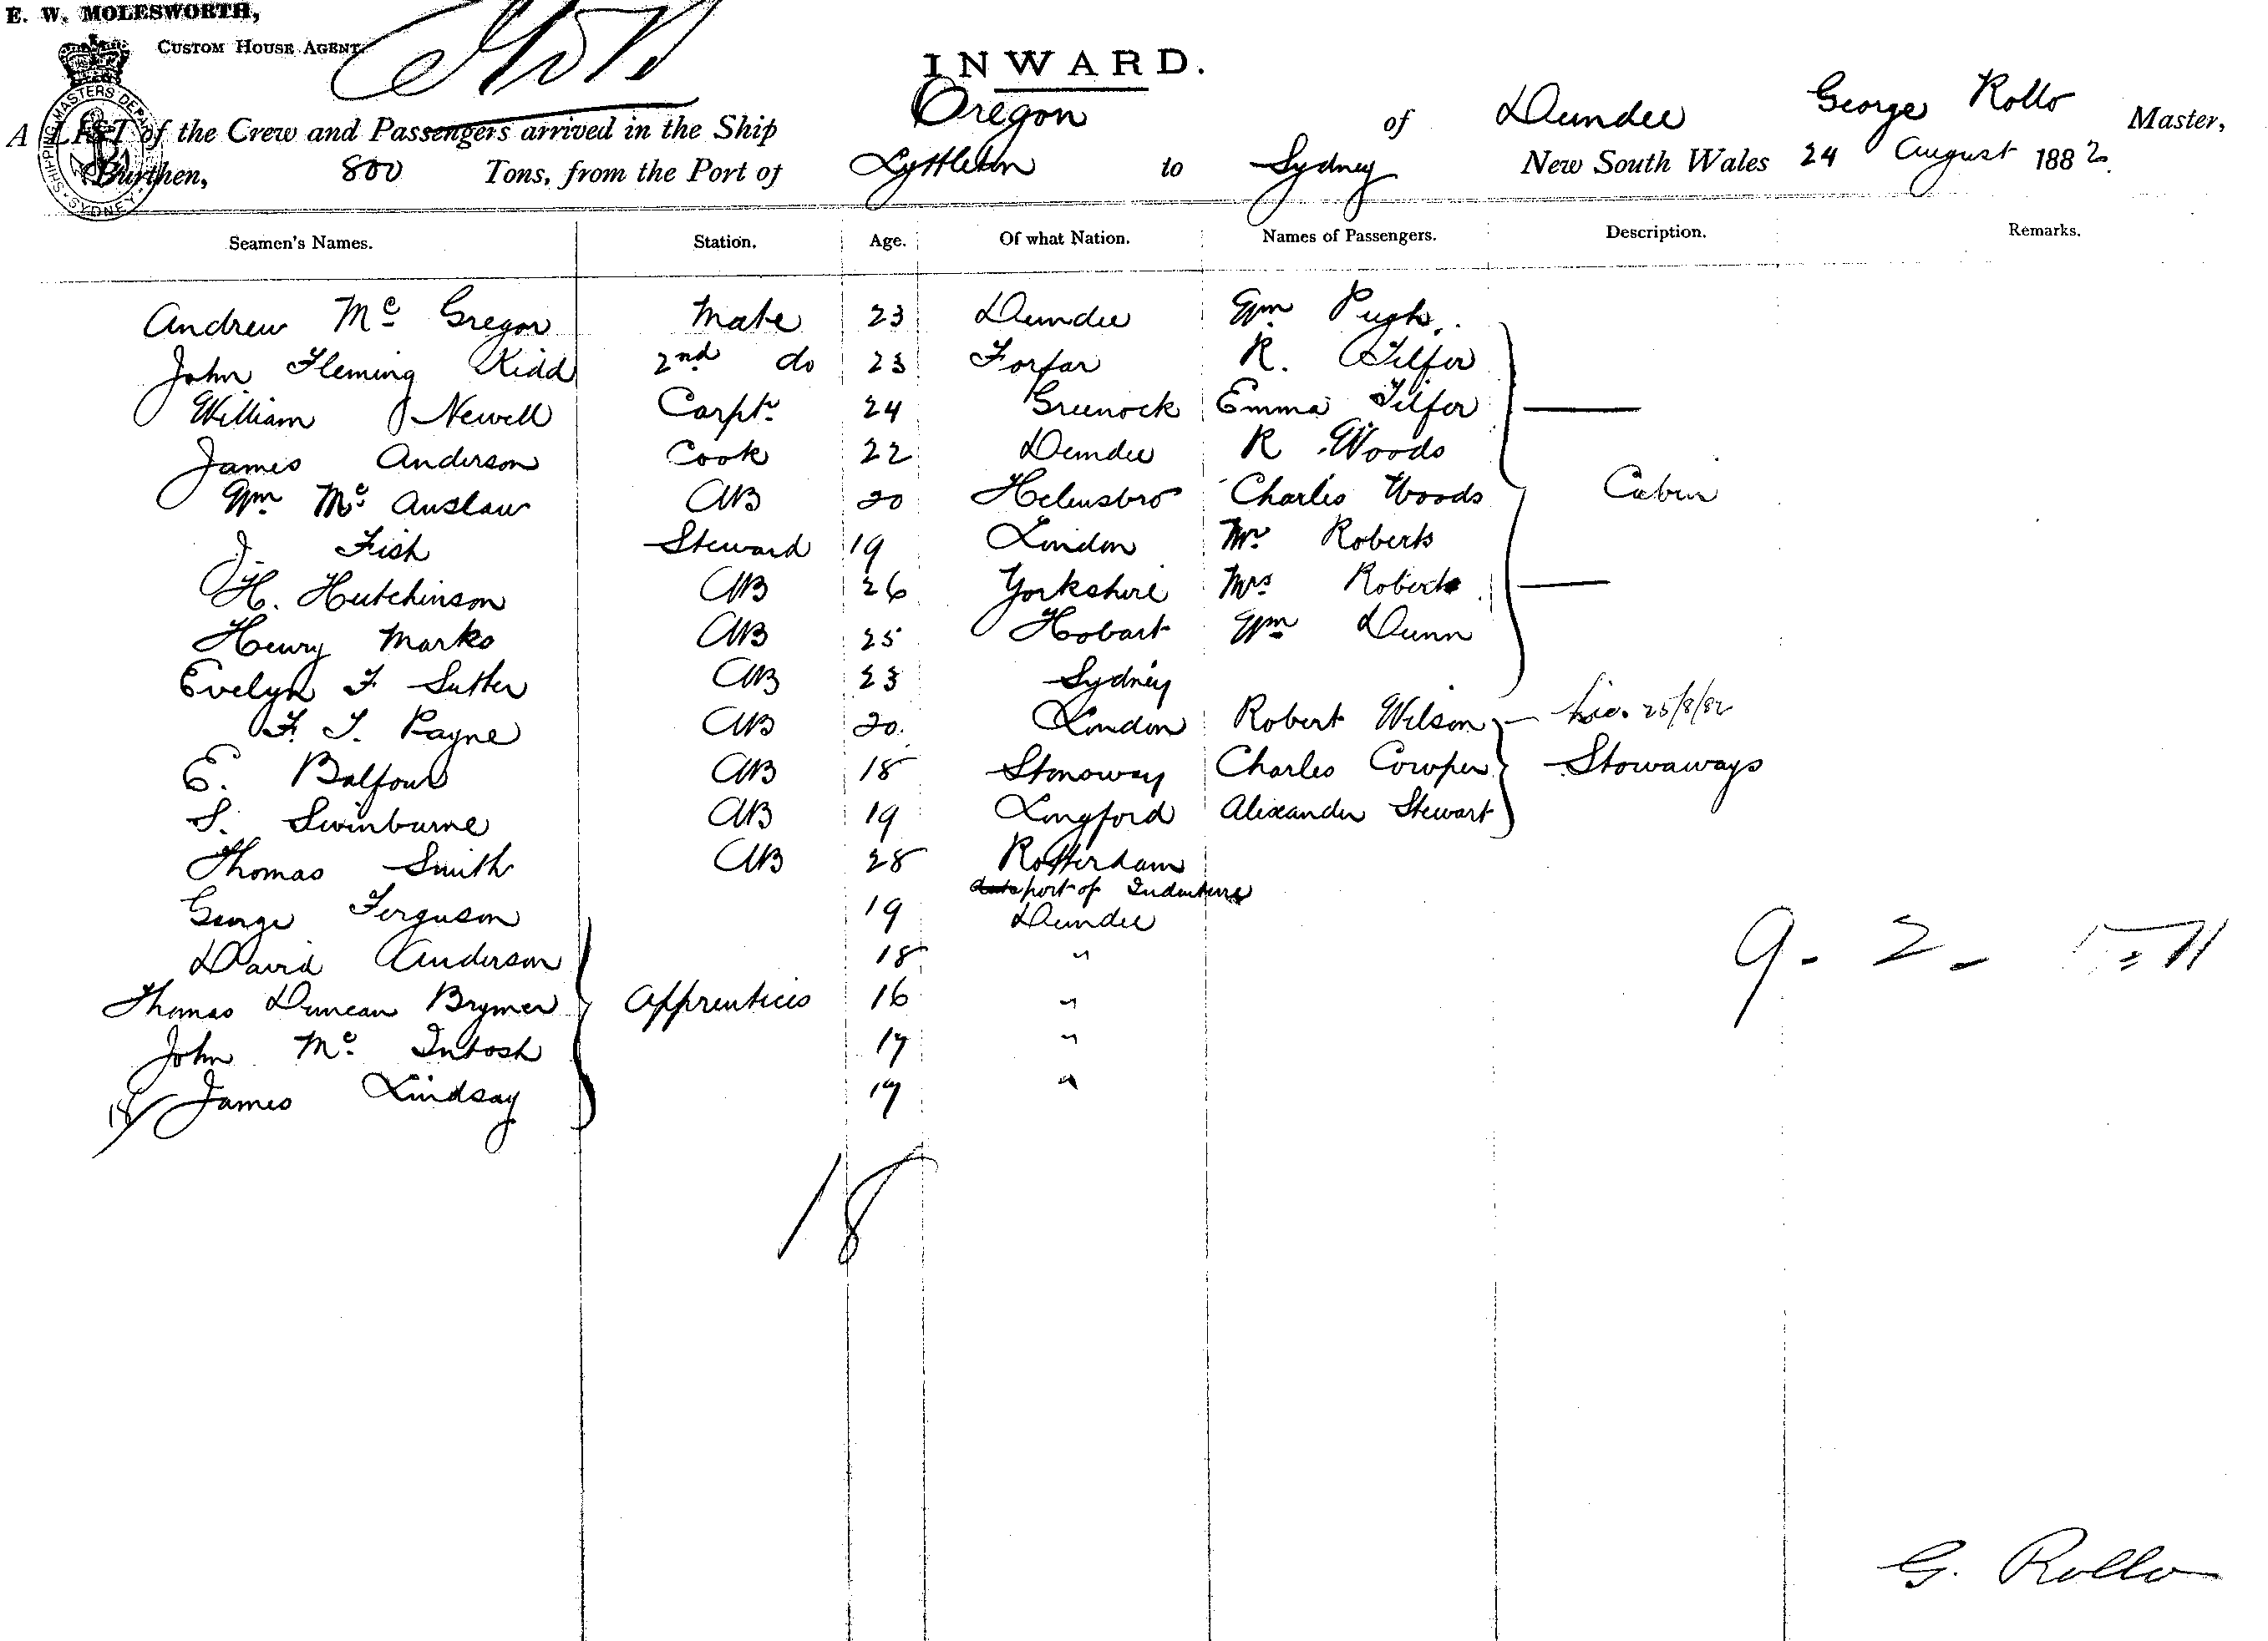 E. W. MOLESWORTH,
CUSTOM HOUSE AGENT.
INWARD.
SHIPPING MASTERS DEPA SYDNEY
A LIST of the Crew and Passengers arrived in the Ship Oregon of Dundee George Rollo Master,
Burthen, 800 Tons, from the Port of Lyttleton to Sydney New South Wales 24 August 1882.
Seamen's Names. Station. Age. Of what Nation. Names of Passengers. Description. Remarks.
Andrew Mc Gregor Mate 23 Dundee Wm Pugh
John Fleming Kidd 2nd do 23 Forfar R. Tilfer
William Newell Carptr 24 Greenock Emma Tilfer
James Anderson Cook 22 Dundee R Woods
Wm Mc Auslaw AB 20 Helensbro Charles Woods Cabin
J. Fish Steward 19 London Mr Roberts
H. Hutchinson AB 26 Yorkshire Mrs Roberts
Henry Marks AB 25 Hobart Wm Dunn
Evelyn F Sutter AB 23 Sydney
F. J. Payne AB 20 London Robert Wilson 25/8/82
E. Balfour AB 18 Stornoway Charles Cowper Stowaways
S. Swinburne AB 19 Longford Alexander Stewart
Thomas Smith AB 28 Rotterdam
port of Indenture
George Ferguson 19 Dundee
David Anderson 18 "
Thomas Duncan Brymer Apprentices 16 "
John Mc Intosh 17 "
18/ James Lindsay 17 "
9 - 2 -
18
G. Rollo